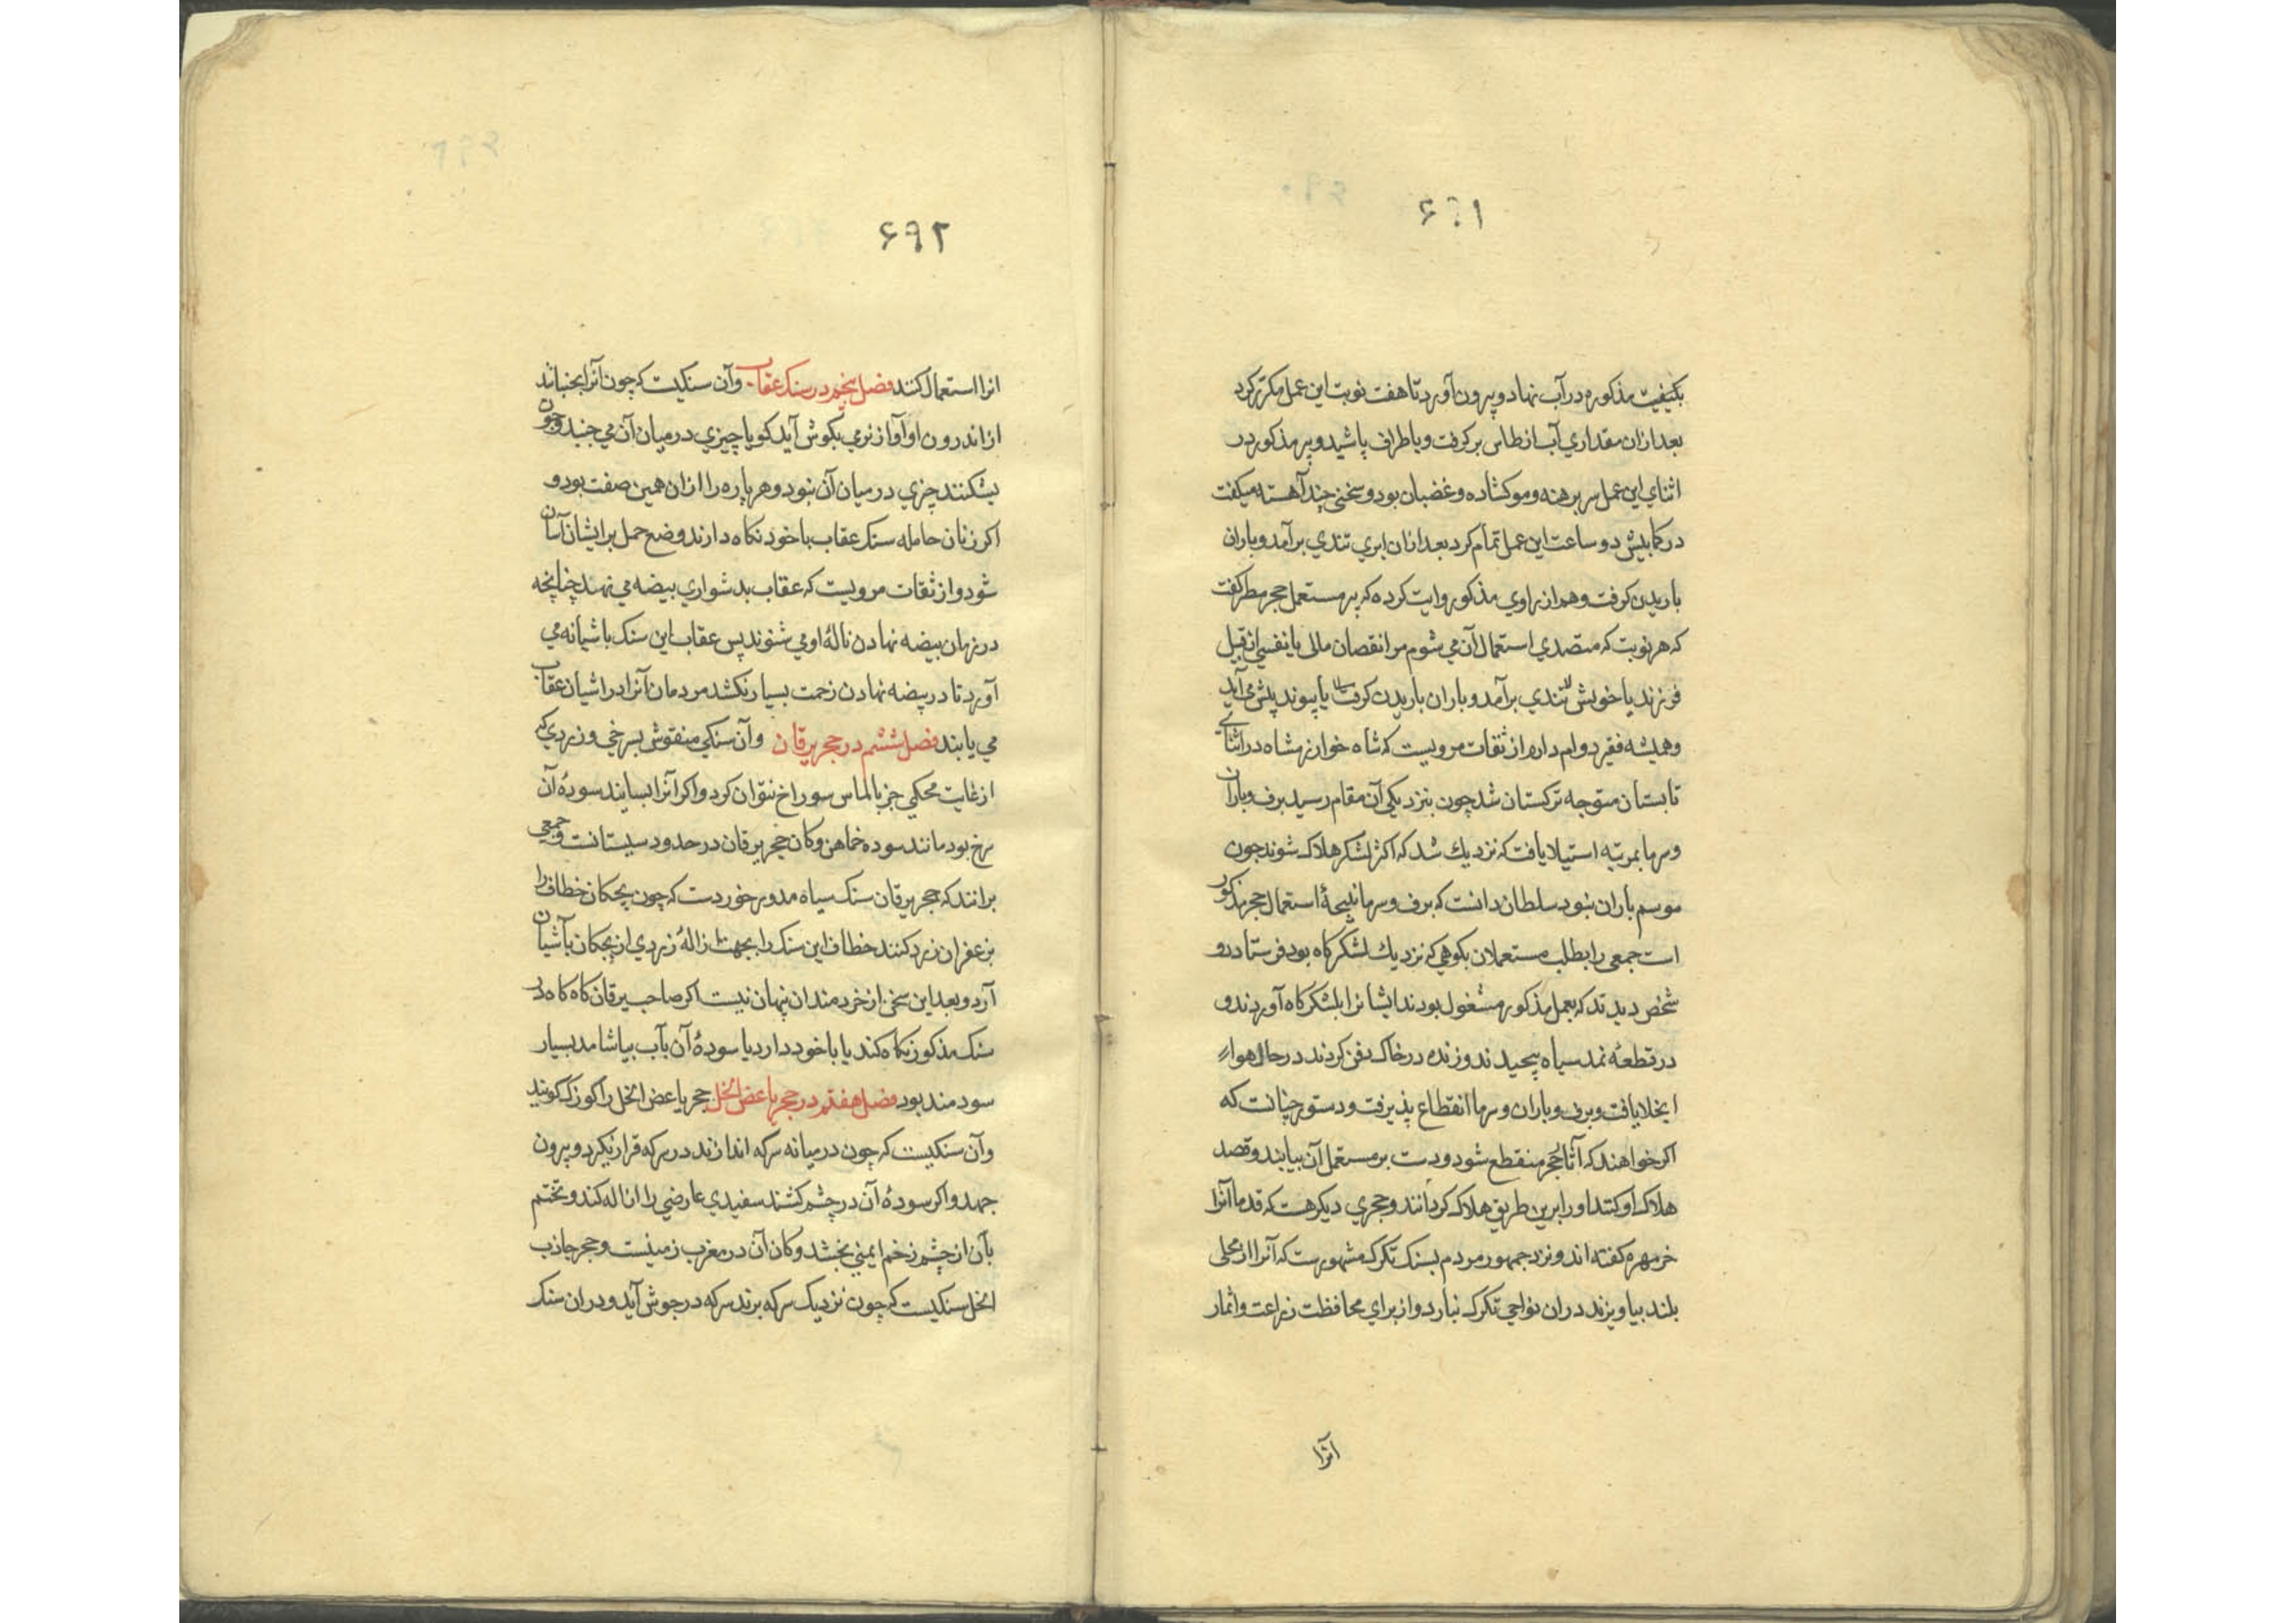 ۶۹۱
بکیفیت مذکوره در آب نهاد و بیرون آورد تا هفت نوبت این عمل مکرر کرد
بعد ازان مقداري آب از طاس بر کرفت و باطراف پاشید و پیر مذکور در
اثناي این عمل سر برهنه و مو کشاده و غضبان بود و سخني چند آهسته میکفت
در کمابیش دو ساعت این عمل تمام کرد بعد ازان ابري تندي برآمد و باران
باریدن کرفت و هم از راوي مذکور روایت کرده که پیر مستعمل حجر مطر کفت
که هر نوبت که متصدي استعمال آن مي شوم مرا نقصان مالی یا نفسي از قبیل
فرزند یا خویش تندي برآمد و باران باریدن کرفت یا پیوند پیش مي آید
و همیشه فقیر دوام دارم از ثقات مرویست که شاه خوارزمشاه در اثناي
تابستان متوجه ترکستان شد چون بنزدیکی آن مقام رسید برف و باران
و سرما بمرتبه استیلا یافت که نزدیك شد که اکثر لشکر هلاک شوند چون
موسم باران نبود سلطان دانست که برف و سرما نتیجۀ استعمال حجر مذکور
است جمعی را بطلب مستعملان بکوهي که نزدیك لشکرکاه بود فرستاد دو
شخص دیدند که بعمل مذکور مشغول بودند ایشانرا بلشکرکاه آوردند و
در قطعۀ نمد سیاه پیچیدند و زنده در خاک دفن کردند در حال هوا
انجلا یافت و برف و باران و سرما انقطاع پذیرفت و دستور چنانست که
اکر خواهند که آثار حجر منقطع شود و دست بر مستعمل آن بیابند و قصد
هلاک او کنند او را برین طریق هلاک کردانند و حجري دیکر هست که قدما آنرا
خرمهره کفته اند و نزد جمهور مردم بسنک تکرک مشهورست که آنرا از محلی
بلند بیاویزند دران نواحي تکرک نبارد و از براي محافظت زراعت و اثمار
آنرا
۶۹۲
انرا استعمال کنند فصل پنجم در سنک عقاب و آن سنکیست که چون آنرا بجنبانند
از اندرون او آواز نرمي بکوش آید کویا چیزي در میان آن مي جنبد و چون
بشکنند چیزي در میان آن نبود و هر پاره را ازان همین صفت بود و
اکر زنان حامله سنک عقاب با خود نکاه دارند وضع حمل بر ایشان آسان
شود و از ثقات مرویست که عقاب بدشواري بیضه مي نهد چنانچه
در زمان بیضه نهادن نالۀ او مي شنوند پس عقاب این سنک باشیانه مي
آورد تا در بیضه نهادن زحمت بسیار نکشد مردمان آنرا در اشیان عقاب
مي یابند فصل ششم در حجر یرقان و آن سنکي منقوش بسرخي و زردي که
از غایت محکمي جز بالماس سوراخ نتوان کرد و اکر آنرا بسایند سودۀ آن
سرخ بود مانند سوده خماهن و کان حجر یرقان در حدود سیستانست و جمعی
برانند که حجر یرقان سنک سیاه مدور خوردست که چون بچکان خطاف را
بزعفران زرد کنند خطاف این سنک را بجهت ازالۀ زردي از بچکان بآشیان
آرد و بعد این سخن از خردمندان پنهان نیست اکر صاحب یرقان کاه کاه در
سنک مذکور نکاه کند یا با خود دارد یا سودۀ آن بآب بیاشامد بسیار
سودمند بود فصل هفتم در حجر باغض الخل حجر باغض الخل را کوزک کویند
و آن سنکیست که چون در میانه سرکه اندازند در سرکه قرار نکیرد و بیرون
جهد و اکر سودۀ آن در چشم کشند سفیدي عارضي را ازاله کند و تختم
بآن از چشم زخم ایمني بخشد و کان آن در مغرب زمینست و حجر جاذب
الخل سنکیست که چون نزدیک سرکه برند سرکه در جوش آید و دران سنک